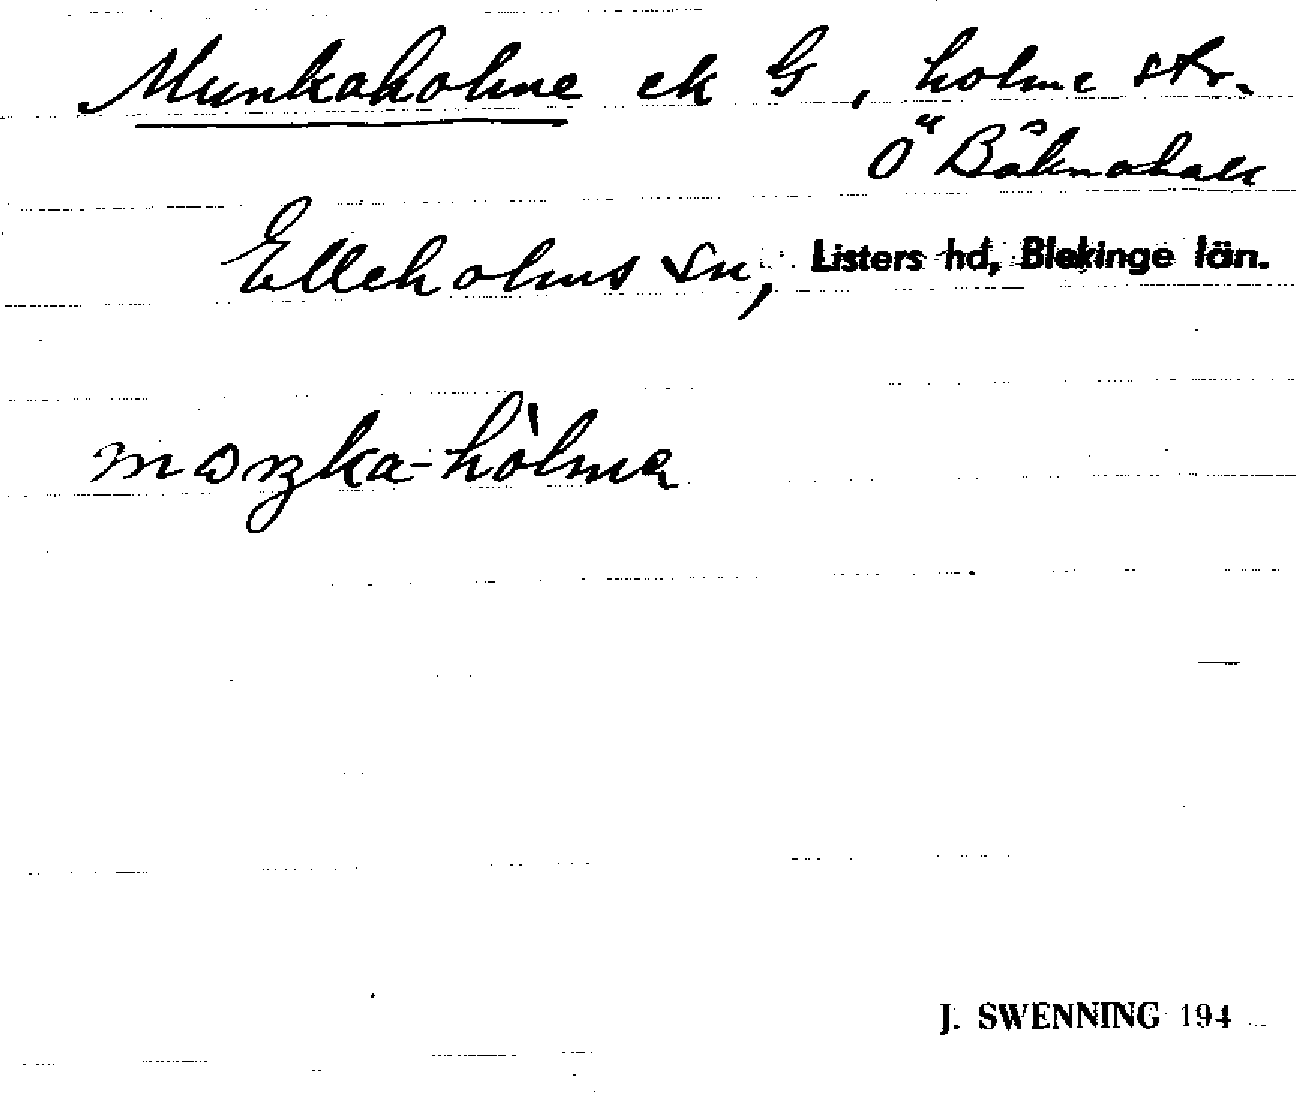 Munkaholme ek G, holme str.
Ö Båknakall
Elleholms sn, Listers hd, Blekinge län.
J. SWENNING 194